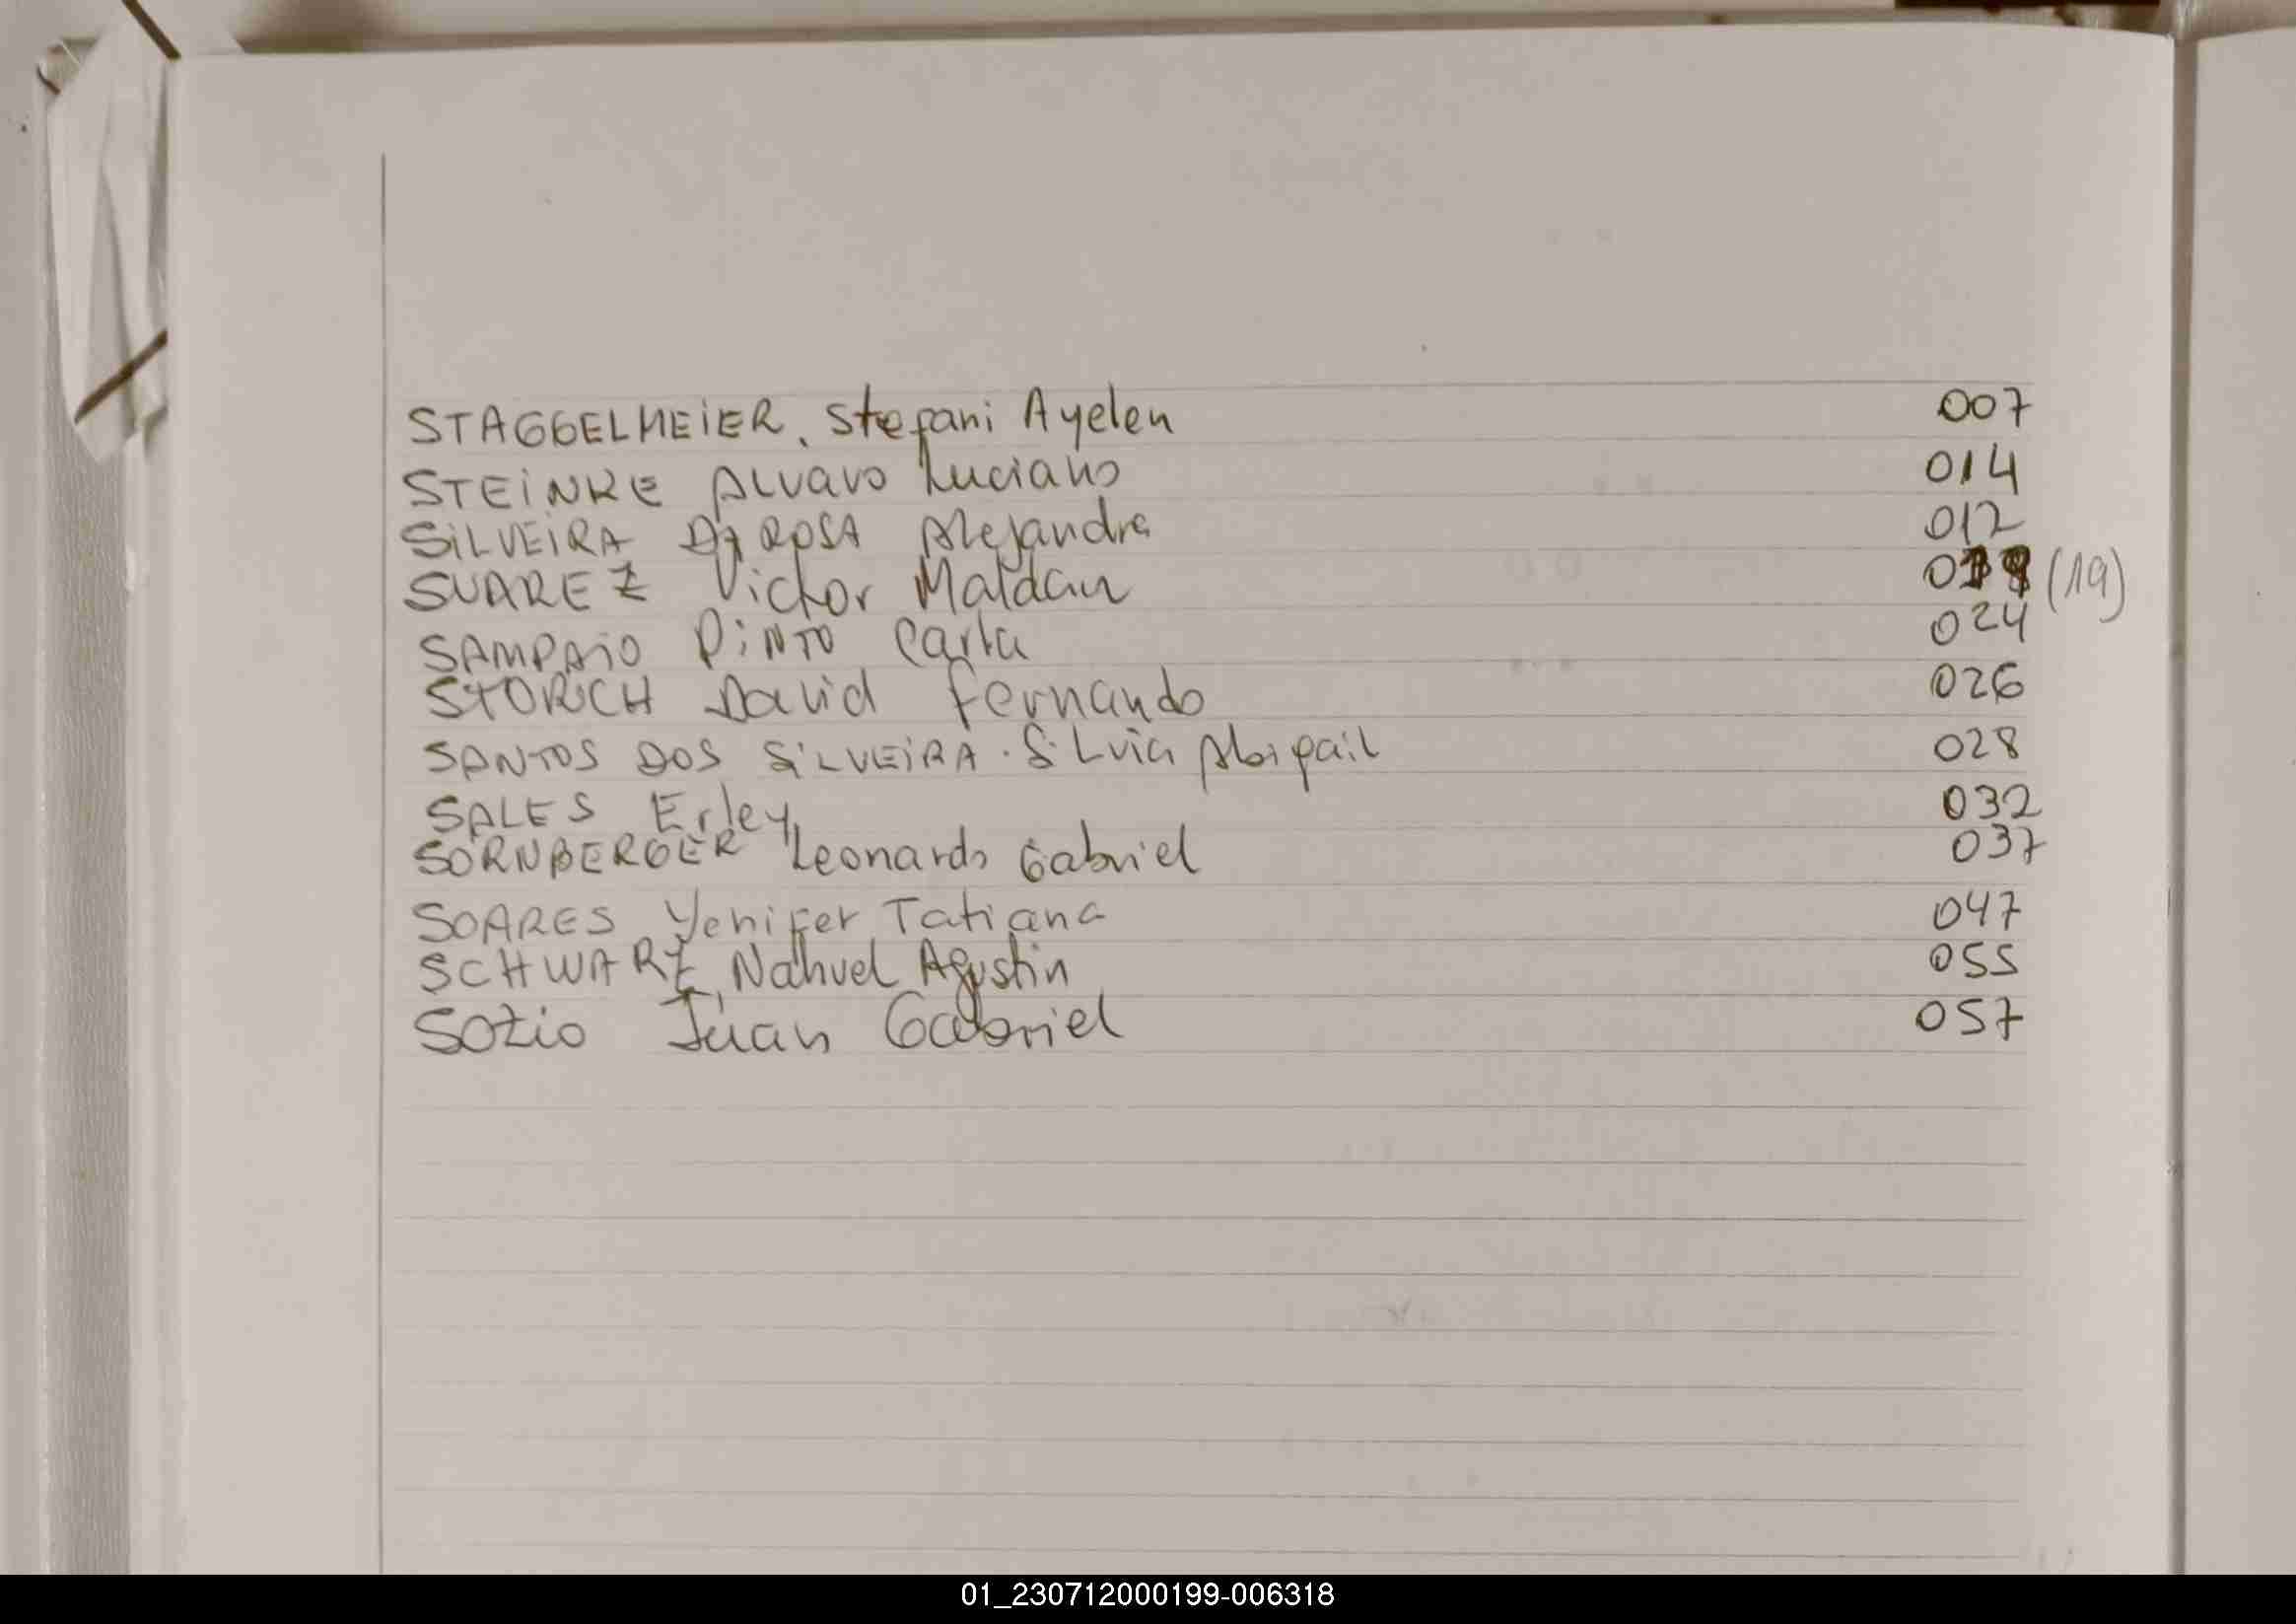 STAGGELMEIER, Stefani Ayelen 007
STEINKE Alvaro Luciano 014
SILVEIRA DA ROSA Alejandra 012
SUAREZ Victor Maldan 019 (19)
SAMPAIO PINTO Carla 024
STORICH David Fernando 026
SANTOS DOS SILVEIRA. Silvia Abigail 028
SALES Erley 032
SORNBERGER Leonardo Gabriel 037
SOARES Yenifer Tatiana 047
SCHWARZ, Nahuel Agustin 055
Sozio Juan Gabriel 057
01_230712000199-006318